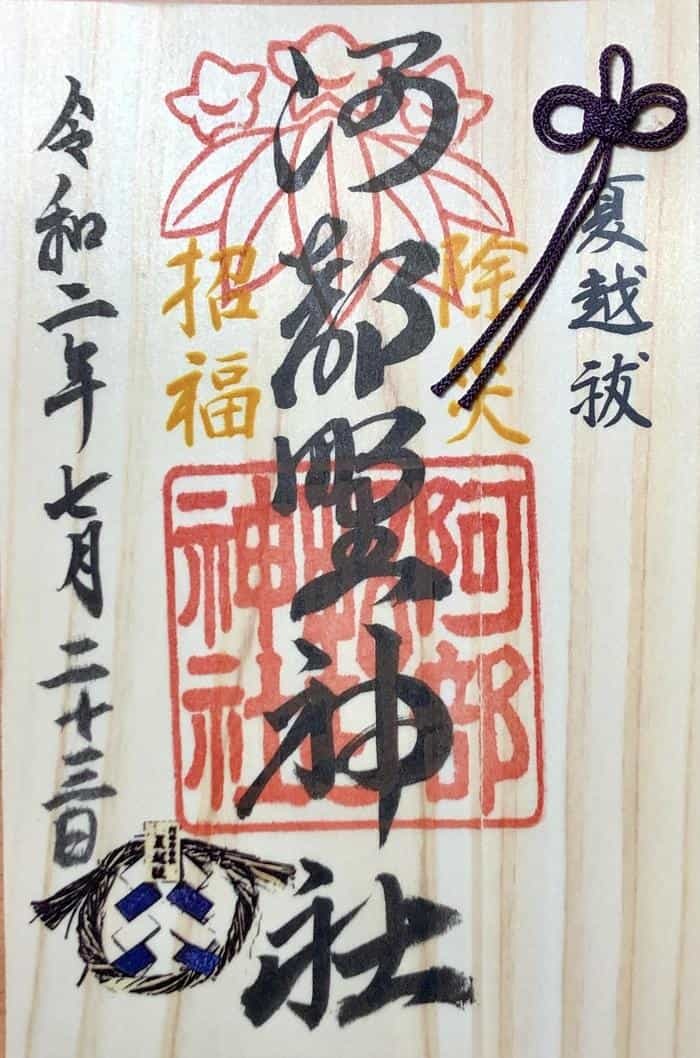 夏越祓
除災
阿部野神社
招福
令和二年七月二十三日
阿部
神社
夏越祓